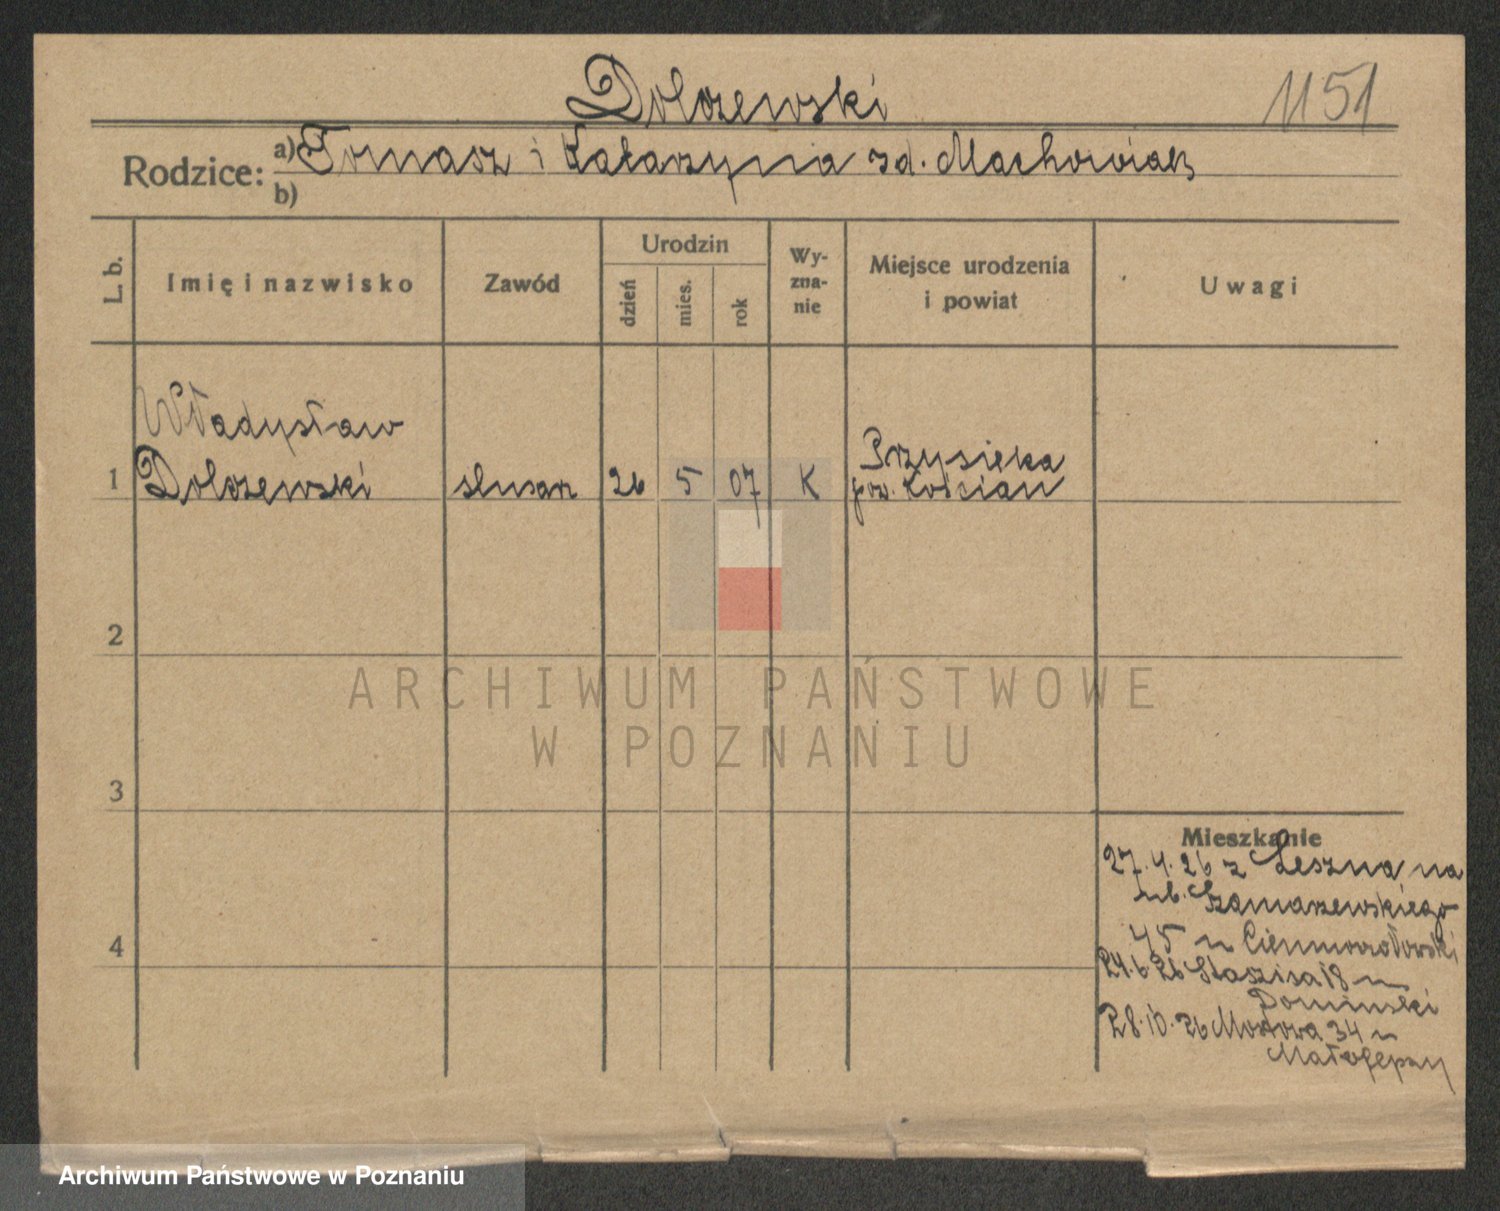 Dolczewski
1151
Rodzice: a) Tomasz i Katarzyna zd. Machowiak
b)
L. b. Imię i nazwisko Zawód Urodzin dzień mies. rok Wyznanie Miejsce urodzenia i powiat Uwagi
Władysław
1 Dolczewski slusarz 26 5 07 K Przysieka
pow. Kościan
2
ARCHIWUM PAŃSTWOWE
W POZNANIU
3
Mieszkanie
27.4.26 z Leszna na
Szamarzewskiego
45 u
4
24.6.26 Staszica 18 u
Domiński
28.10.26 Mostowa 34 u
Małolepszy
Archiwum Państwowe w Poznaniu